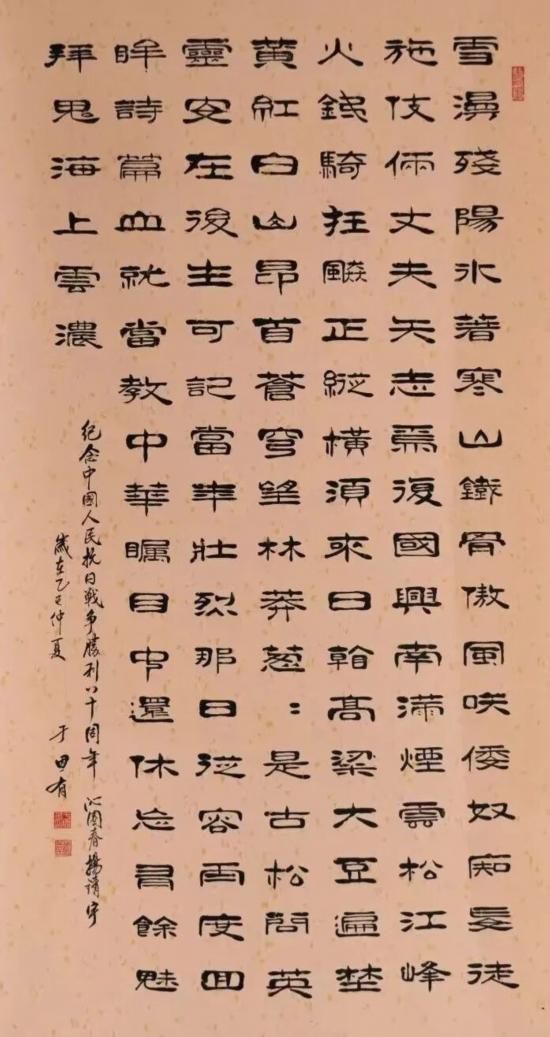 雪漫殘陽氷著寒山鐵骨傲風咲倭奴痴妄徒
施伎倆丈夫矢志焉復國興南滿煙雲松江峰
火鐵騎狂飈正縱橫須來日看高粱大豆遍埜
黃紅白山昂首蒼穹望林莽蔥：是古松問英
靈安在後生可記當年壯烈那日從容兩度回
眸詩篇血就當教中華矚目中還休忘有餘魅
拜鬼海上雲濃
紀念中國人民抗日戰爭勝利八十周年 沁園春楊靖宇
歲在乙巳仲夏